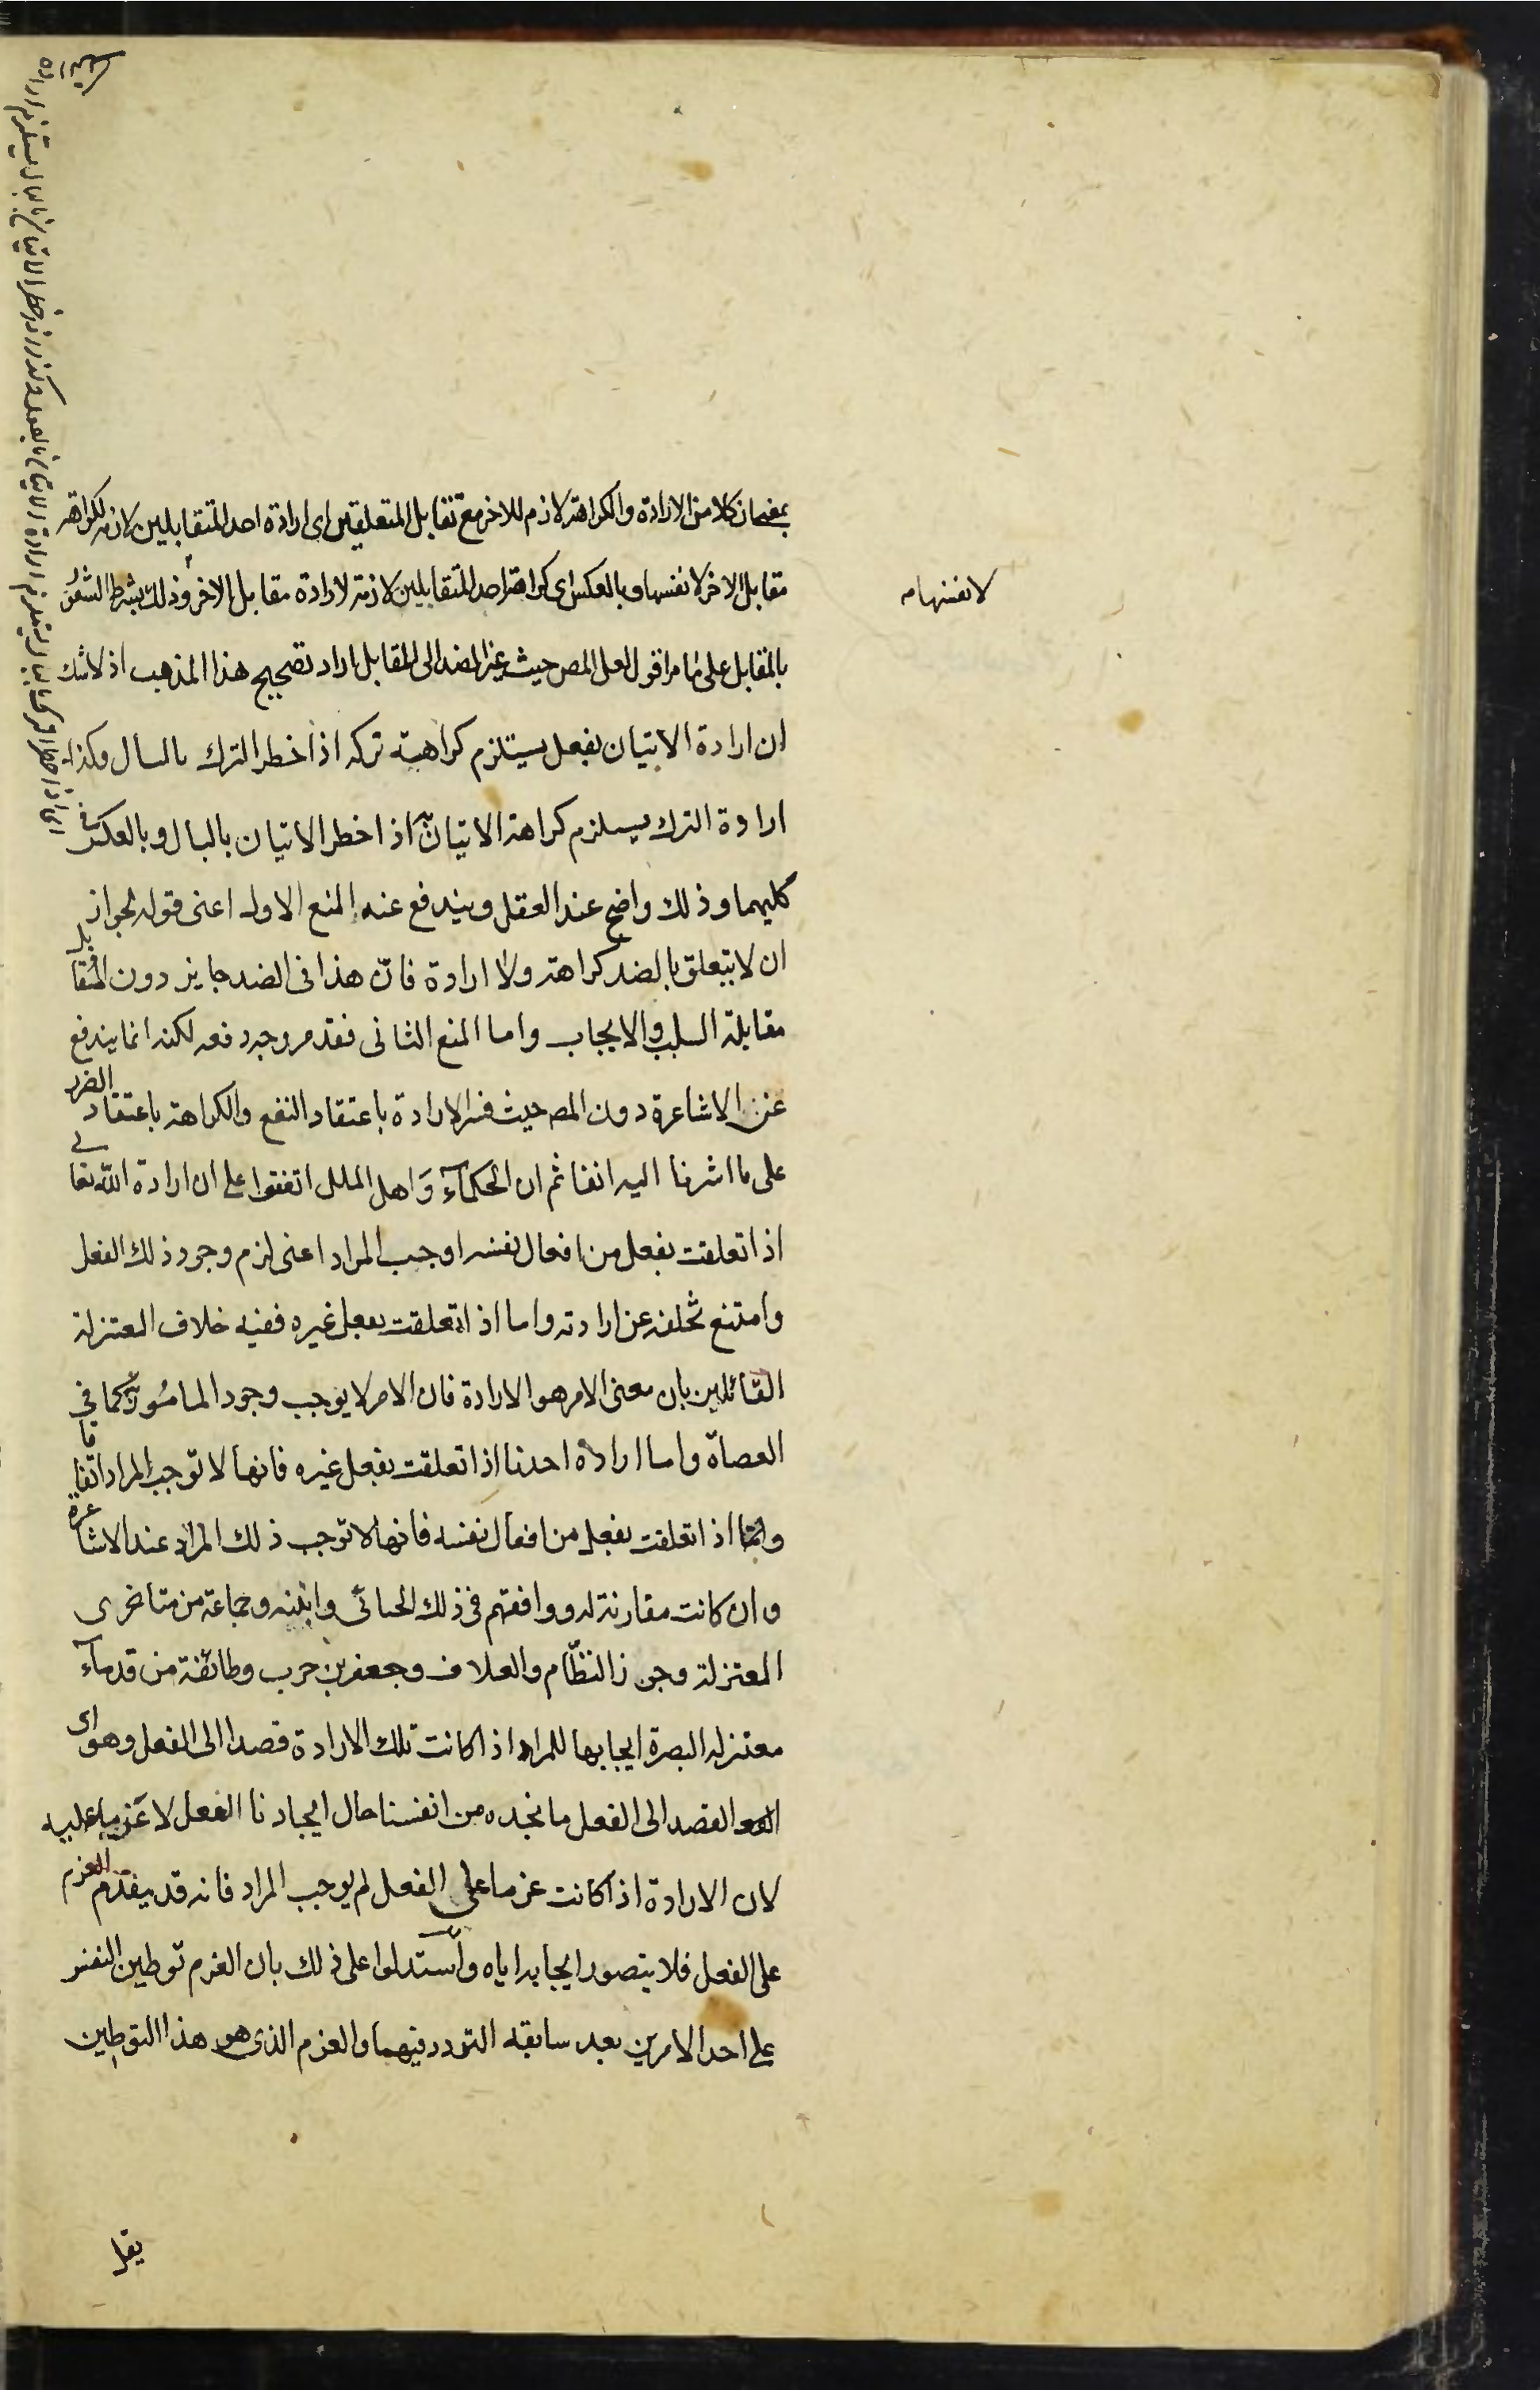 بمعنى ان كلا من الارادة والكراهة لازم للاخر مع تقابل المتعلقين اى ارادة احد المتقابلين لازمة لكراهة
مقابل الاخر لا نفسها وبالعكس اى كراهة احد المتقابلين لازمة لارادة مقابل الاخر وذلك بشرط الشعور
لا نفسها م
بالمقابل على ما مر اقول لعل المص حيث غير الضد الى المقابل اراد تصحيح هذا المذهب اذ لا شك
ان ارادة الاتيان بفعل يستلزم كراهية تركه اذا خطر الترك بالبال وكذا
ارادة الترك يستلزم كراهة الاتيان به اذا خطر الاتيان بالبال وبالعكس فى
كليهما وذلك واضح عند العقل ويندفع عنه المنع الاول اعنى قوله لجواز
ان لا يتعلق بالضد كراهة ولا ارادة فان هذا فى الضد جايز دون المتقابل
مقابلة السلب والايجاب واما المنع الثانى فقد مر وجه دفعه لكنه انما يندفع
عن الاشاعرة دون المص حيث فسر الارادة باعتقاد النفع والكراهة باعتقاد الضرر
على ما اشرنا اليه انفا ثم ان الحكمآء وَاهل الملل اتفقوا على ان ارادة الله تعالى
اذا تعلقت بفعل من افعال نفسه اوجب المراد اعنى لزم وجود ذلك الفعل
وامتنع تخلفه عن ارادته واما اذا تعلقت بفعل غيره ففيه خلاف المعتزلة
القائلين بان معنى الامر هو الارادة فان الامر لا يوجب وجود المامور به كما فى
العصاة واما ارادة احدنا اذا تعلقت بفعل غيره فانها لا توجب المراد اتفاقا
واما اذا تعلقت بفعل من افعال نفسه فانها لا توجب ذلك المراد عند الاشاعرة
وان كانت مقارنة له ووافقهم فى ذلك الجبائى وابنه وجماعة من متاخرى
المعتزلة وجوز النظّام والعلاف وجعفر بن حرب وطائفة من قدمآء
معتزلة البصرة ايجابها للمراد اذا كانت تلك الارادة قصدا الى الفعل وهو اى
القصد الى الفعل ما نجده من انفسنا حال ايجادنا الفعل لا عزما عليه
لان الارادة اذا كانت عزما على الفعل لم يوجب المراد فانه قد يتقدم العزم
على الفعل فلا يتصور ايجابه اياه واستدلوا على ذلك بان العزم توطين النفس
على احد الامرين بعد سابقة التردد فيهما والعزم الذى هو هذا التوطين
يقل